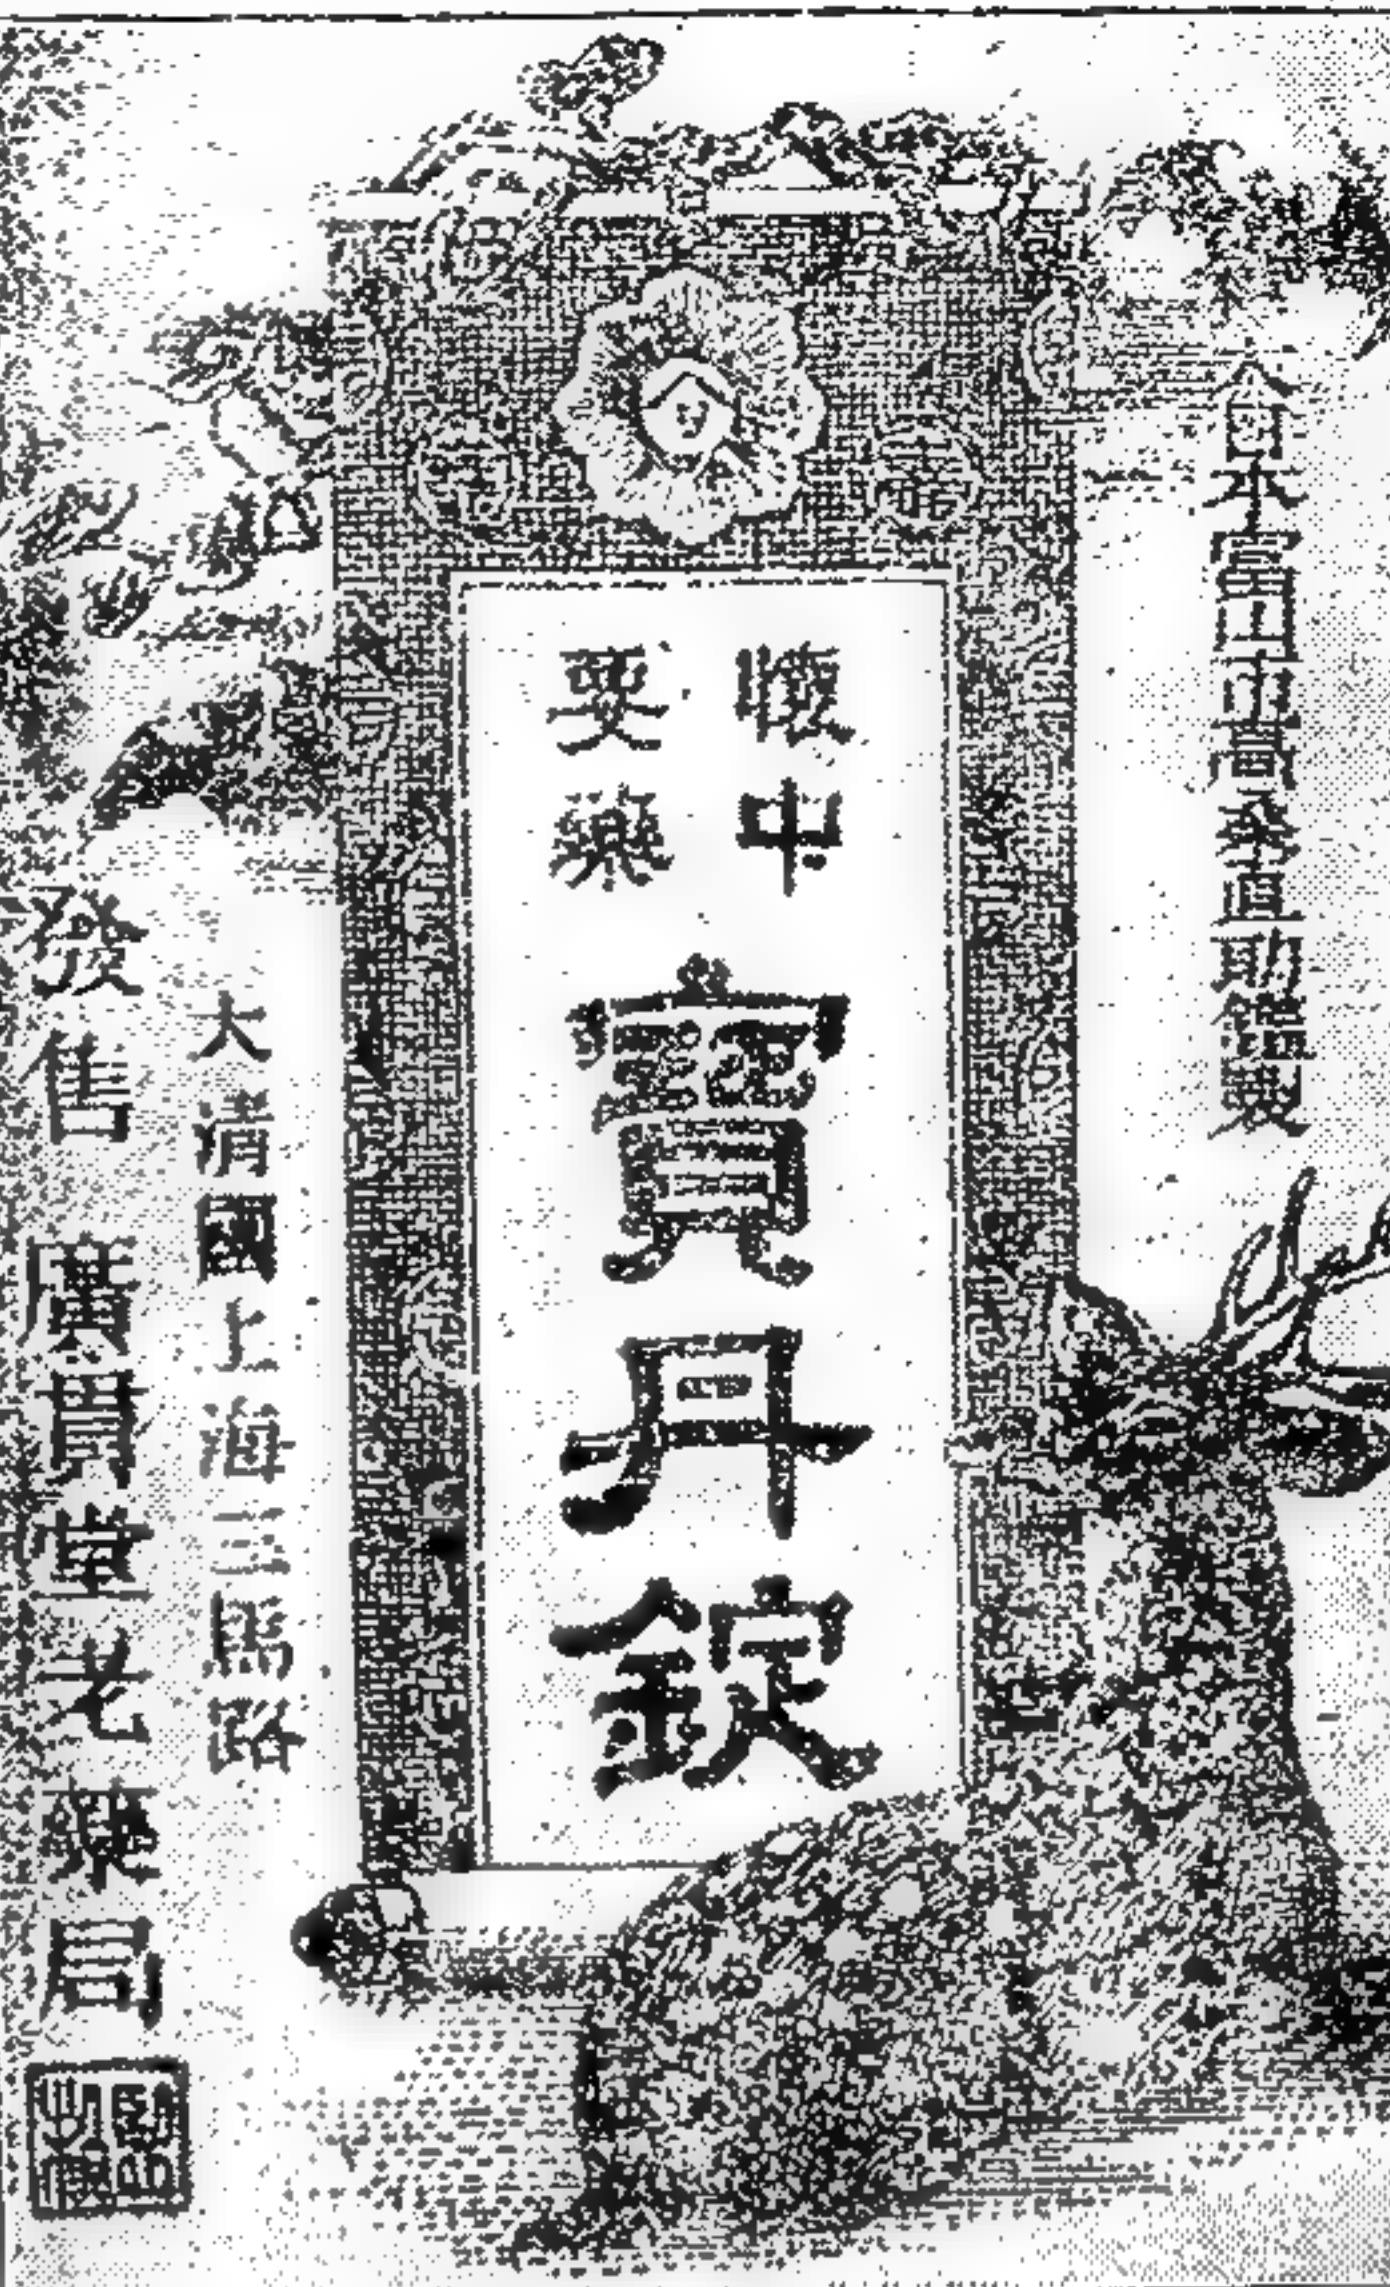 大日本富山市高桑直助鑑製
懷中
要藥
寶丹錠
大清國上海三馬路
發售 廣貫堂老藥局